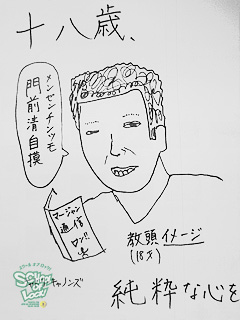 十八歳、
メンゼンチンツモ
門前清自摸
マージャン
通信
ロン!!
教頭イメージ
(18才)
SCHOOL
OF LOCK!
キャノンズ
純粋な心を